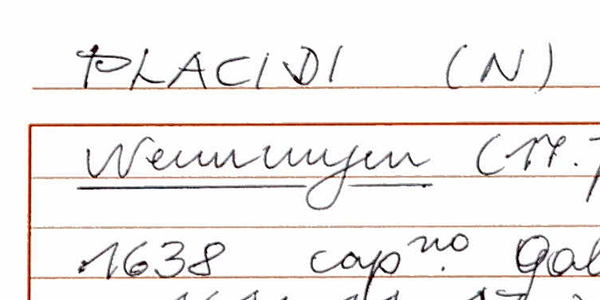 PLACIDI (N)
Wemmingen (17.
1638 cap.no Gal